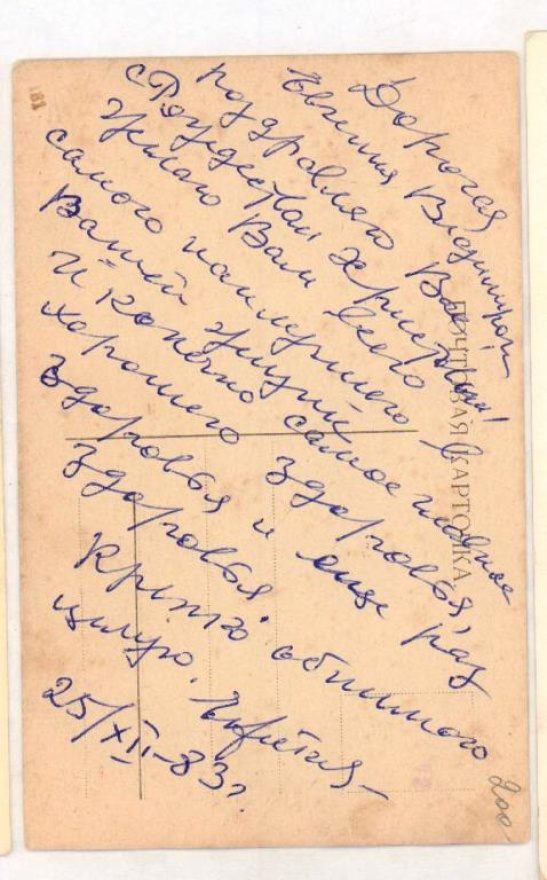 Дорогая
Евгения Владимировн
поздравляю Вас
с Рождеством Христовым!
Желаю Вам всего
самого наилучшего в
Вашей жизни
и конечно самое главное
хорошего здоровья,
здоровья и еще раз
здоровья.
Крепко обнимаю
целую.
25/XII-83г.
ПОЧТОВАЯ КАРТОЧКА
200